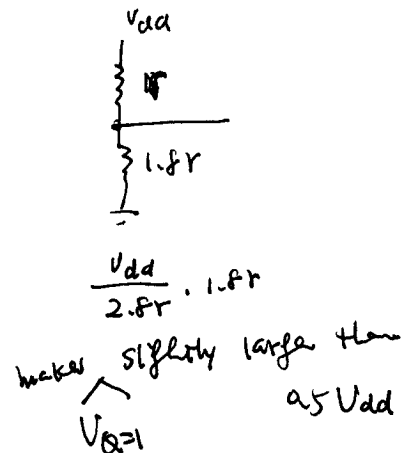 Vdd
r
1.8r
Vdd
2.8r . 1.8r
makes slightly larger than
VQ=1 0.5 Vdd